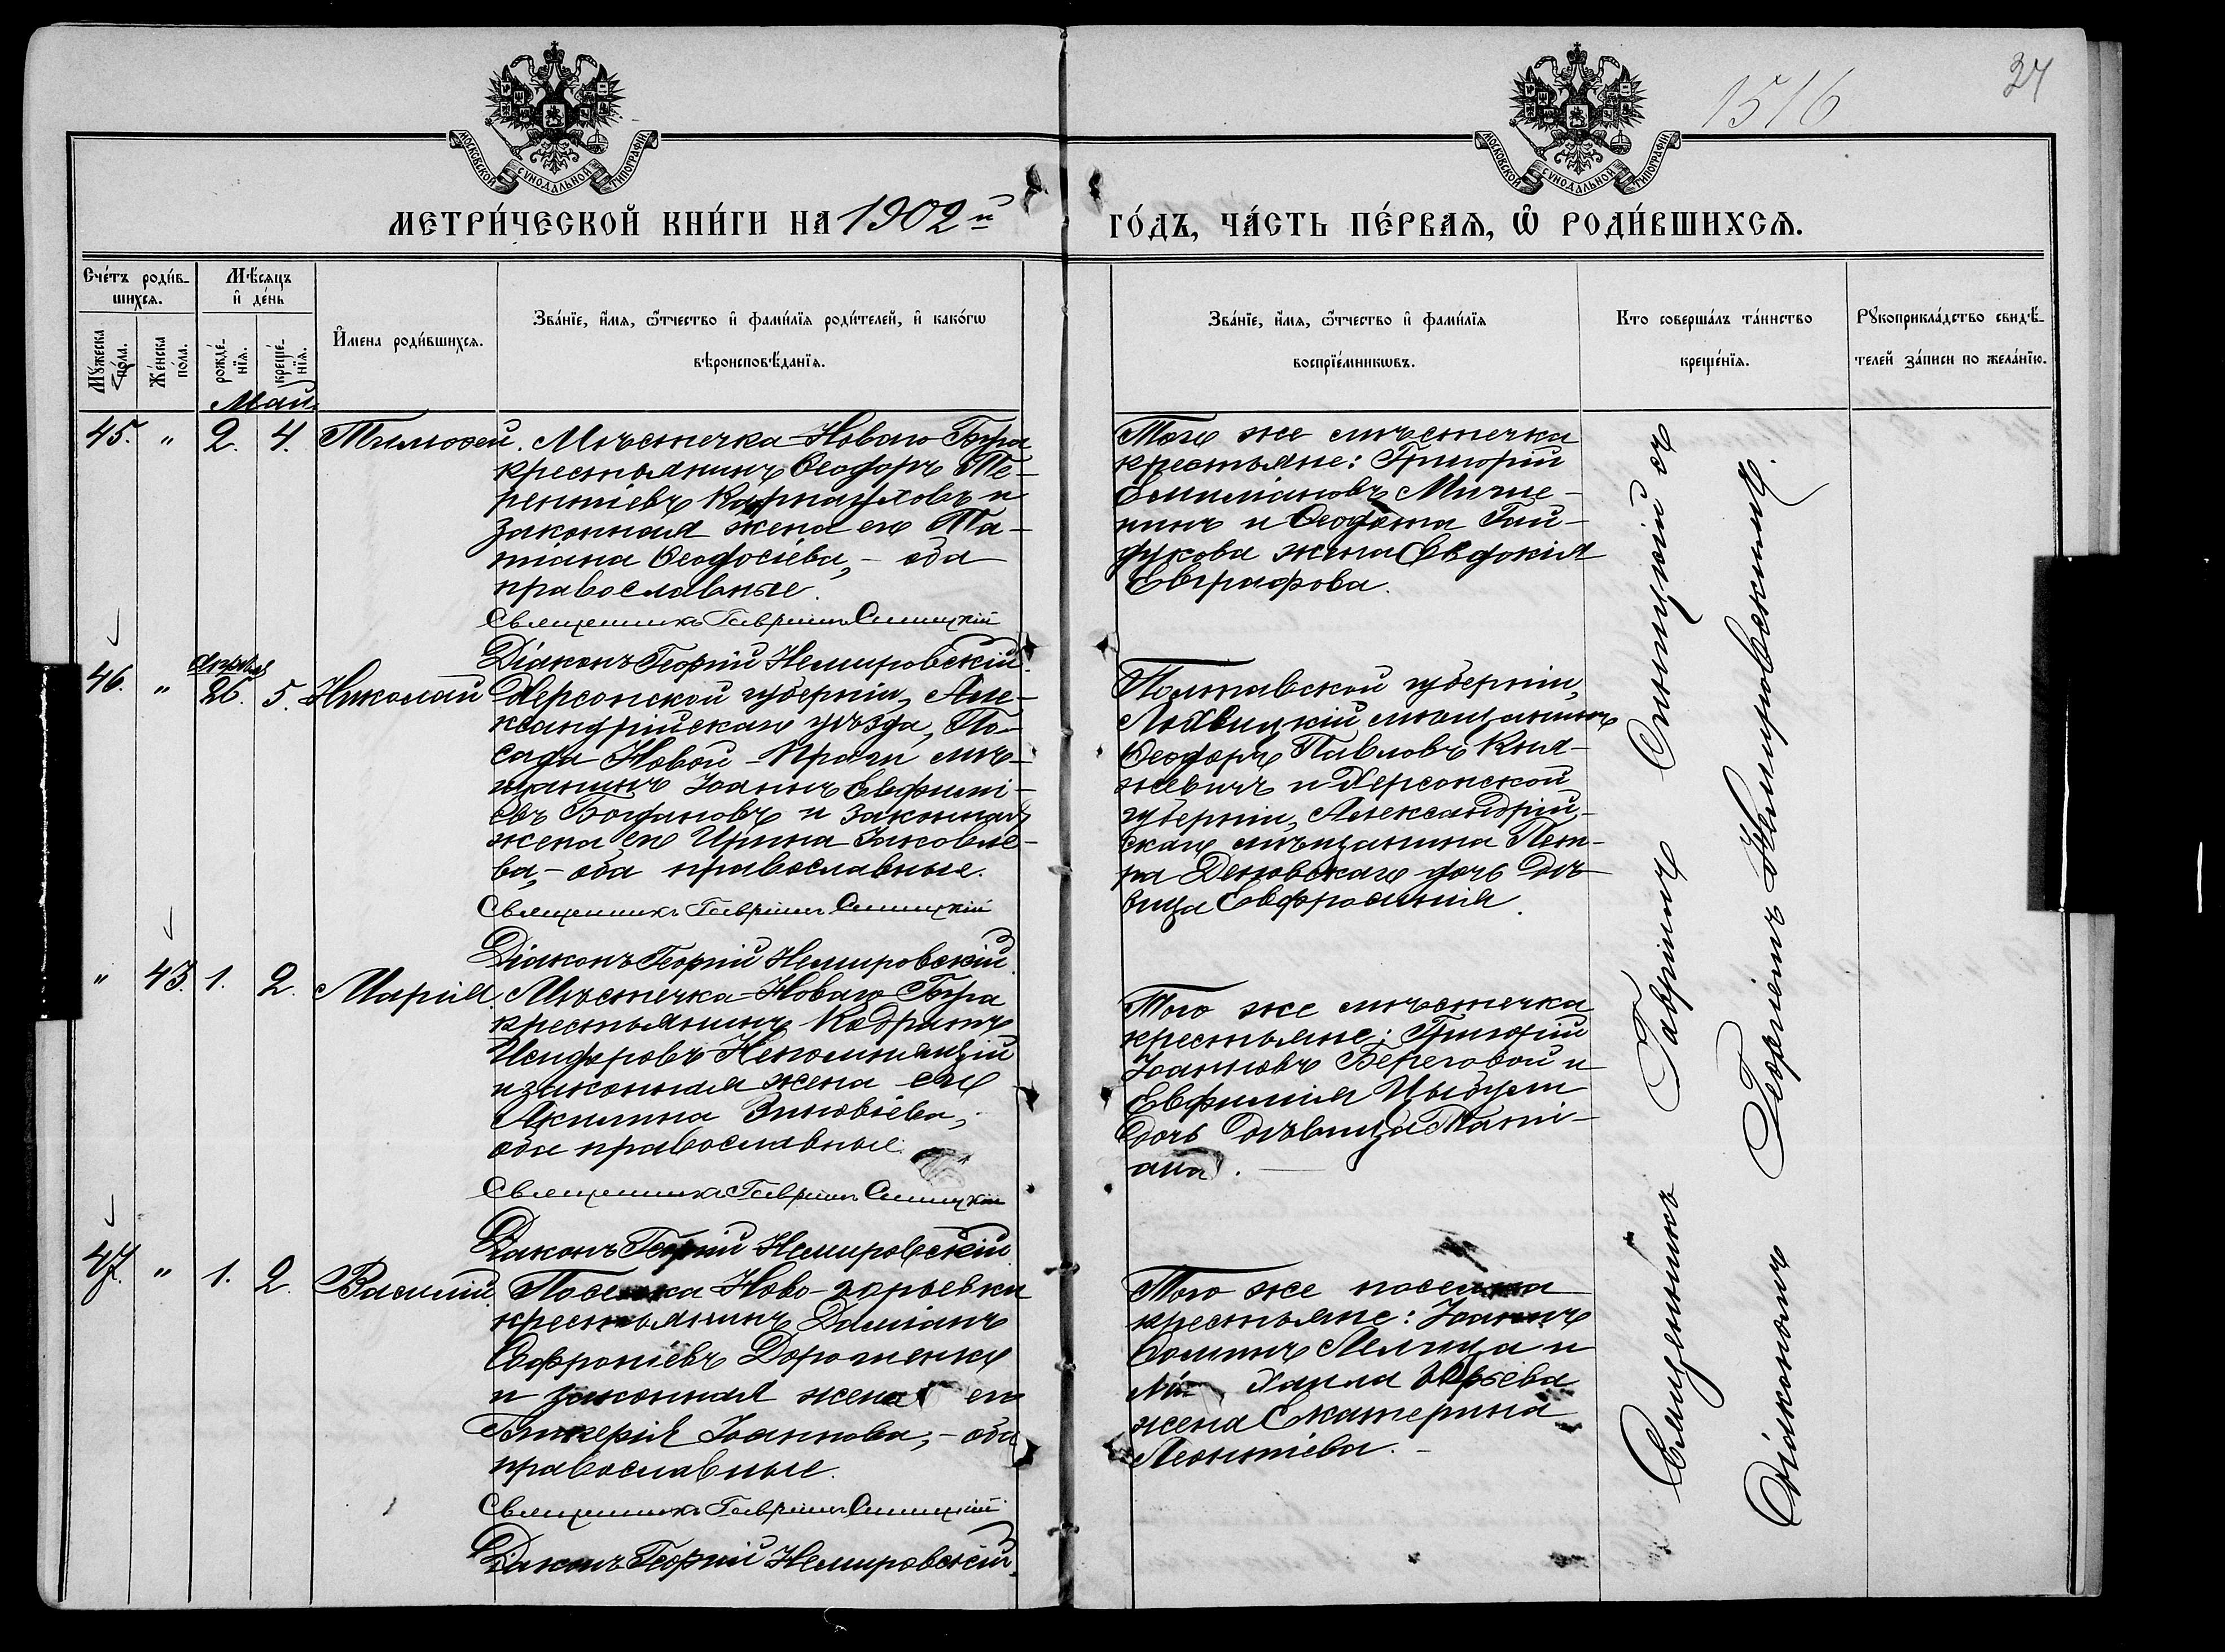 1516
34
МОСКОВСКОЙ СѴНОДАЛЬНОЙ ТИПОГРАФІИ
МОСКОВСКОЙ СѴНОДАЛЬНОЙ ТИПОГРАФІИ
МЕТРИ́ЧЕСКОЙ КНИ́ГИ НА 1902й
ГО́ДЪ, ЧА́СТЬ ПЕ́РВАѦ, Ѡ҆ РОДИ́ВШИХСѦ.
Сче́тъ роди́в-
шихся.
Мѣсяцъ
и҆ де́нь
Му́жеска
по́ла.
Же́нска
по́ла.
рожде́-
нїя.
креще́-
нїя.
И҆мена роди́вшихся.
Зва́нїе, и҆́мя, ѻ҆́тчество и҆ фами́лїя роди́телей, и҆ како́гѡ
вѣроисповѣ́данїя.
Зва́нїе, и҆́мя, ѻ҆́тчество и҆ фами́лїя
воспрїе́мникѡвъ.
Кто соверша́лъ та́инство
креще́нїя.
Рꙋкоприкла́дство свидѣ́-
телей за́писи по жела́нїю.
Май.
45. " 2. 4. Тимоѳей. Мѣстечка Новаго Буга
крестьянинъ Ѳеодоръ Те-
рентіевъ и
законная жена его Та-
тіана Ѳеодосіева, – оба
православные.
Священникъ Гавріилъ Синицкій
Діаконъ Георгій Немировскій.
Того же мѣстечка
крестьяне: Григорій
Емиліановъ
и Ѳеодота Гай-
дукова жена Евдокія
Евграфова.
апрѣля
46. " 26. 5. Николай Херсонской губерніи, Але-
ксандрійскаго уѣзда, По-
сада Новой-Праги мѣ-
щанинъ Іоаннъ Евфимі-
евъ Богдановъ и законная
жена его Ирина Іаковле-
ва, – оба православные.
Священникъ Гавріилъ Синицкій
Діаконъ Георгій Немировскій
Полтавской губерніи,
Лохвицкій мѣщанинъ
Ѳеодоръ Павловъ Кня-
жевичъ и Херсонской
губерніи, Александрій-
скаго мѣщанина Пет-
ра дочь дѣ-
вица Евфросинія.
" 43. 1. 2. Марія. Мѣстечка Новаго Буга
крестьянинъ Кодратъ
Исидоровъ Непомнящій
и законная жена его
Акилина Зиновіева, –
оба православные.
Священникъ Гавріилъ Синицкій
Діаконъ Георгій Немировскій
Того же мѣстечка
крестьяне: Григорій
Іоанновъ Береговой и
Евфимія
дочь дѣвица Таті-
ана. –
47. " 1. 2. Василій. Поселка Ново-Юрьевки
крестьянинъ Даміанъ
Софроніевъ Дорошенко
и законная жена его
Гликерія Іоаннова, – оба
православные.
Священникъ Гавріилъ Синицкій
Діаконъ Георгій Немировскій.
Того же поселка
крестьяне: Іоаннъ
и
Юрьева
жена Екатерина
Леонтіева. –
Священникъ Гавріилъ Синицкій съ
Діакономъ Георгіемъ Немировскимъ.